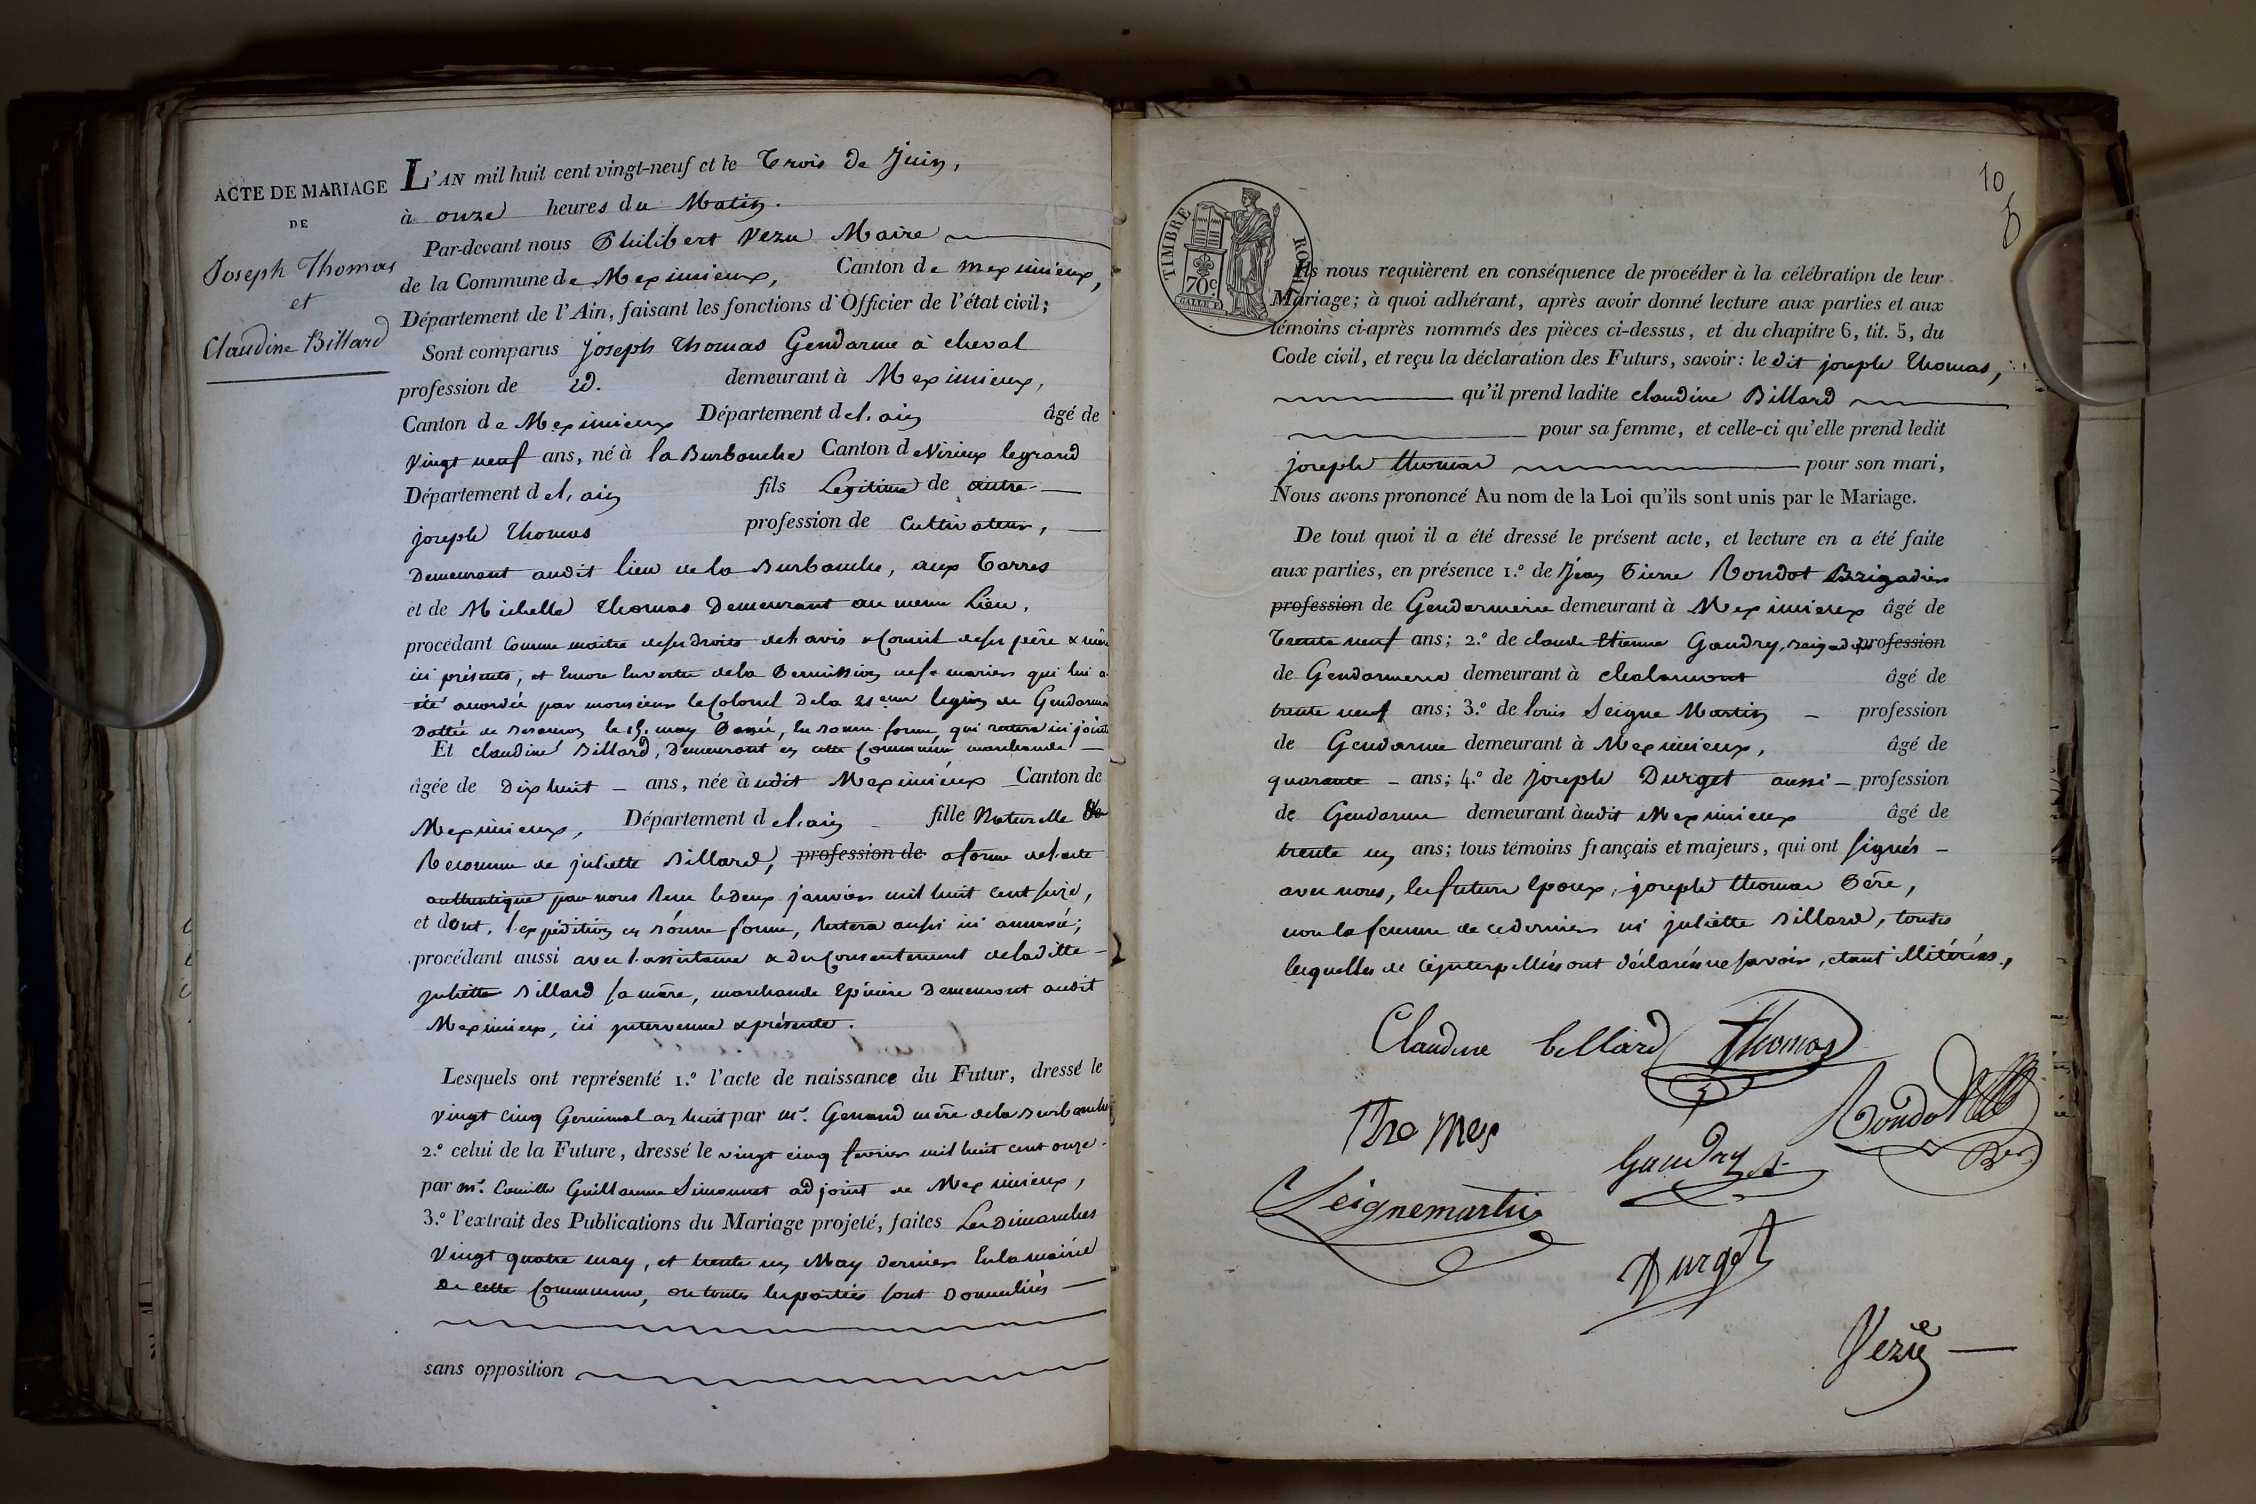 ACTE DE MARIAGE
DE
Joseph Thomas
et
Claudine Billard
L'AN mil huit cent vingt-neuf et le Trois de Juin,
à onze heures du Matin.
Par-devant nous Philibert Vezu Maire
de la Commune de Meximieux, Canton de meximieux,
Département de l'Ain, faisant les fonctions d'Officier de l'état civil;
Sont comparus joseph Thomas Gendarme à cheval
profession de id. demeurant à Meximieux,
Canton de Meximieux Département del. ain âgé de
Vingt neuf ans, né à la Burbanche Canton de Virieux legrand
Département del. ain fils Legitime de autre
joseph Thomas profession de Cultivateur,
Demeurant audit lieu de la Burbanche, aux Carres
et de Michelle Thomas Demeurant au meme Lieu,
procédant Comme maitre deses droits del'avis & Conseil deses père & mère
ici présents, et Encore Envertu dela Permission dese marier qui lui a
été accordée par monsieur le Colonel dela 21eme legion de Gendarmerie
Dattée de Besancon le 15. may Passé, En bonne forme, qui restera ici jointe
Et claudine Billard, Demeurant en cette Commune marchande
âgée de Dix huit ans, née àudit Meximieux Canton de
Meximieux, Département del. ain fille Naturelle &
Reconnue de juliette Billard, profession de aforme del'acte
authentique par nous Recu ledeux janvier mil huit cent seize,
et dont, l'expédition en bonne forme, Restera aussi ici annexée;
procédant aussi avec l'assistance & du Consentement deladitte
juliette Billard sa mère, marchande Epicière Demeurant audit
Meximieux, ici intervenue & présente.
Lesquels ont représenté 1.º l'acte de naissance du Futur, dressé le
vingt cinq Germinal an huit par mr. Genand mère dela Burbanche
2.º celui de la Future, dressé le vingt cinq fevrier mil huit cent onze.
par mr. Camille Guillaume Simonnet adjoint de Meximieux,
3.º l'extrait des Publications du Mariage projeté, faites Les Dimanches
Vingt quatre may, et trente un May dernier Enlamairie
De cette Commune, ou toutes lesparties sont Domiciliées
sans opposition
10
TIMBRE ROYAL
70c
Ils nous requièrent en conséquence de procéder à la célébration de leur
Mariage; à quoi adhérant, après avoir donné lecture aux parties et aux
témoins ci-après nommés des pièces ci-dessus, et du chapitre 6, tit. 5, du
Code civil, et reçu la déclaration des Futurs, savoir: le dit joseph Thomas,
qu'il prend ladite claudine Billard
pour sa femme, et celle-ci qu'elle prend ledit
joseph thomas pour son mari,
Nous avons prononcé Au nom de la Loi qu'ils sont unis par le Mariage.
De tout quoi il a été dressé le présent acte, et lecture en a été faite
aux parties, en présence 1.º de Jean Pierre Rondot Brigadier
profession de Gendarmerie demeurant à Meximieux âgé de
Trente neuf ans; 2.º de claude Etienne Gaudry, Brigadier profession
de Gendarmerie demeurant à chalamont âgé de
trente neuf ans; 3.º de louis Seigne Martin profession
de Gendarme demeurant à Meximieux, âgé de
quarante ans; 4.º de joseph Durget aussi profession
de Gendarme demeurant àudit Meximieux âgé de
trente un ans; tous témoins français et majeurs, qui ont signés
avec nous, les futurs Epoux, joseph thomas Père,
non la femme de cedernier ni juliette Billard, toutes
lesquelles de ce interpellées ont déclarés ne savoir, étant illitérées.
Claudine billard Thomas
Thomas
Rondot
Gaudry
Seignemartin
Durget
Vezu